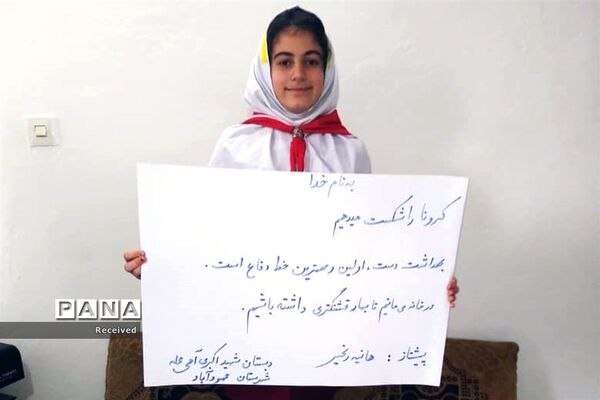 به نام خدا
کرونا را شکست میدهیم
بهداشت دست، اولین و مهمترین خط دفاع است.
در خانه می مانیم تا بهار قشنگتری داشته باشیم.
پیشتاز: هانیه
دبستان شهید اکبری آهی محله
شهرستان محمودآباد
PANA
Received